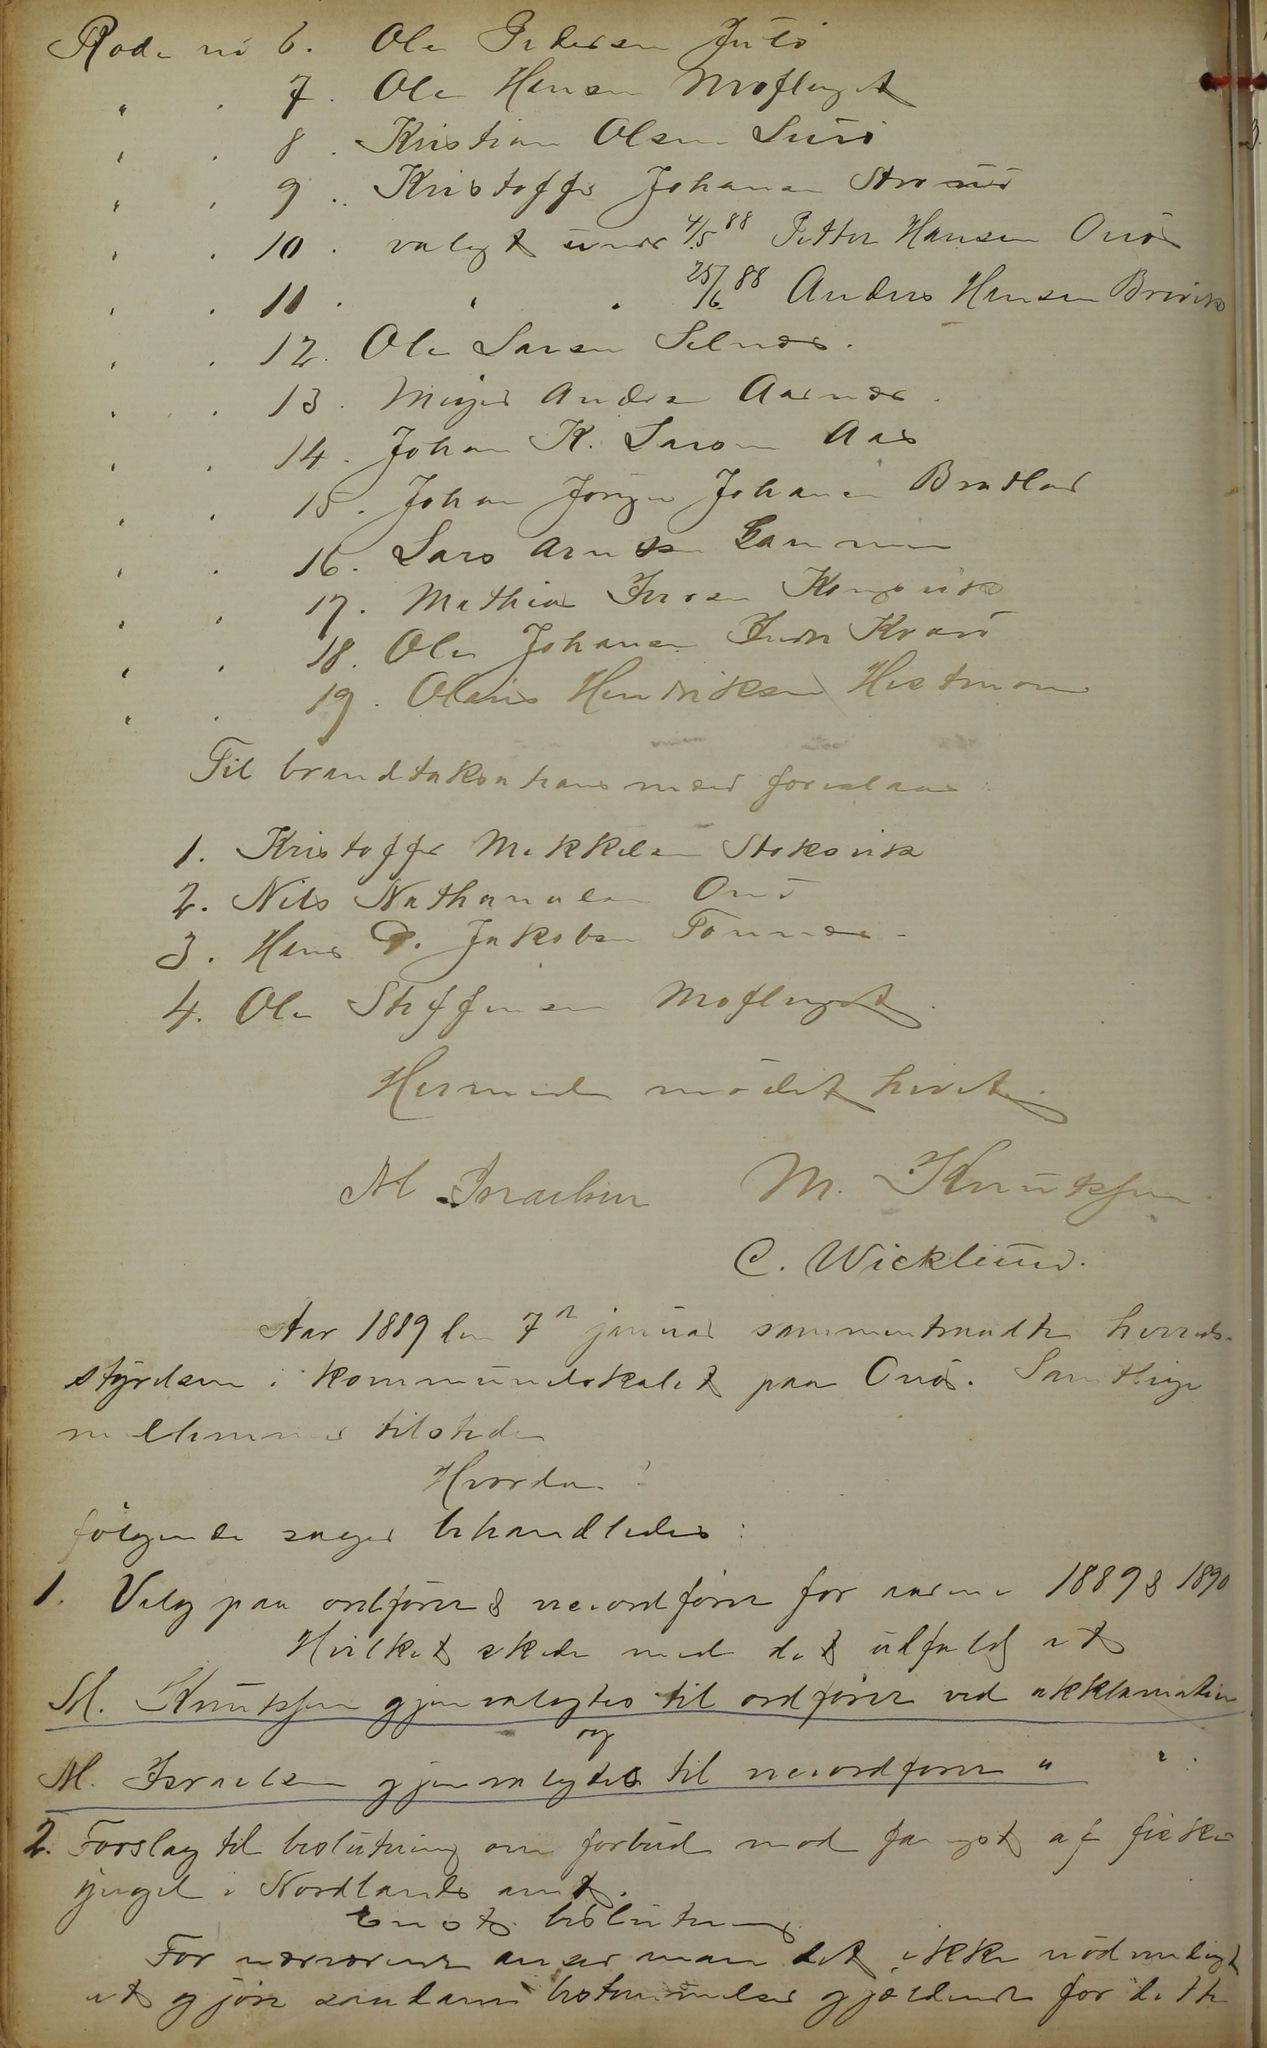 Rode no 6. Ole Pedersen
" . 7. Ole Hansen Moflaget
" . 8. Kristian Olsen Lurö
" . 9. Kristoffer Johansen
" . 10. valgt under 4/5 88 Petter Hansen Onö
" . 11. " . 25/6 88 Anders Hansen
" . 12. Ole Larsen Selnæs.
" . 13. Meyer Andersen Aarnæs.
" . 14. Johan K. Larsen Aas
" . 15. Johan Jörgen Johansen Bratland
" . 16. Lars Arntsen
" . 17. Mathias Kongsvik
" . 18. Ole Johansen Indre Kvarö
" . 19. Olaus Hendriksen Hestmon
Til brandtakstationsmænd foreslaaes:
1. Kristoffer Mikkelsen Stoksvik
2. Nils Nathanaelsen Onö
3. Hans P. Jakobsen Tonnes.
4. Ole Steffensen Moflaget.
Hermed mödet hævet.
M Israelsen M. Knutssen
C. Wicklund.
Aar 1889 den 7de januar sammentraadte herreds-
styrelsen i kommunelokalet paa Onö. Samtlige
medlemmer tilstede
Hvorda:
fölgende sager behandledes:
1. Valg paa ordförer & viceordförer for aarene 1889 & 1890
Hvilket skede med det udfald at
M. Knutssen gjenvalgtes til ordförer ved akklamation
og
M. Israelsen gjenvalgtes til viceordförer " " .
2. Forslag til beslutning om forbud mod fangst af fiske
yngel i Nordlands amt.
Enst. beslutning
For nærværende anser man det ikke nödvendigt
at gjöre saadanne bestemmelser gjældende for dette